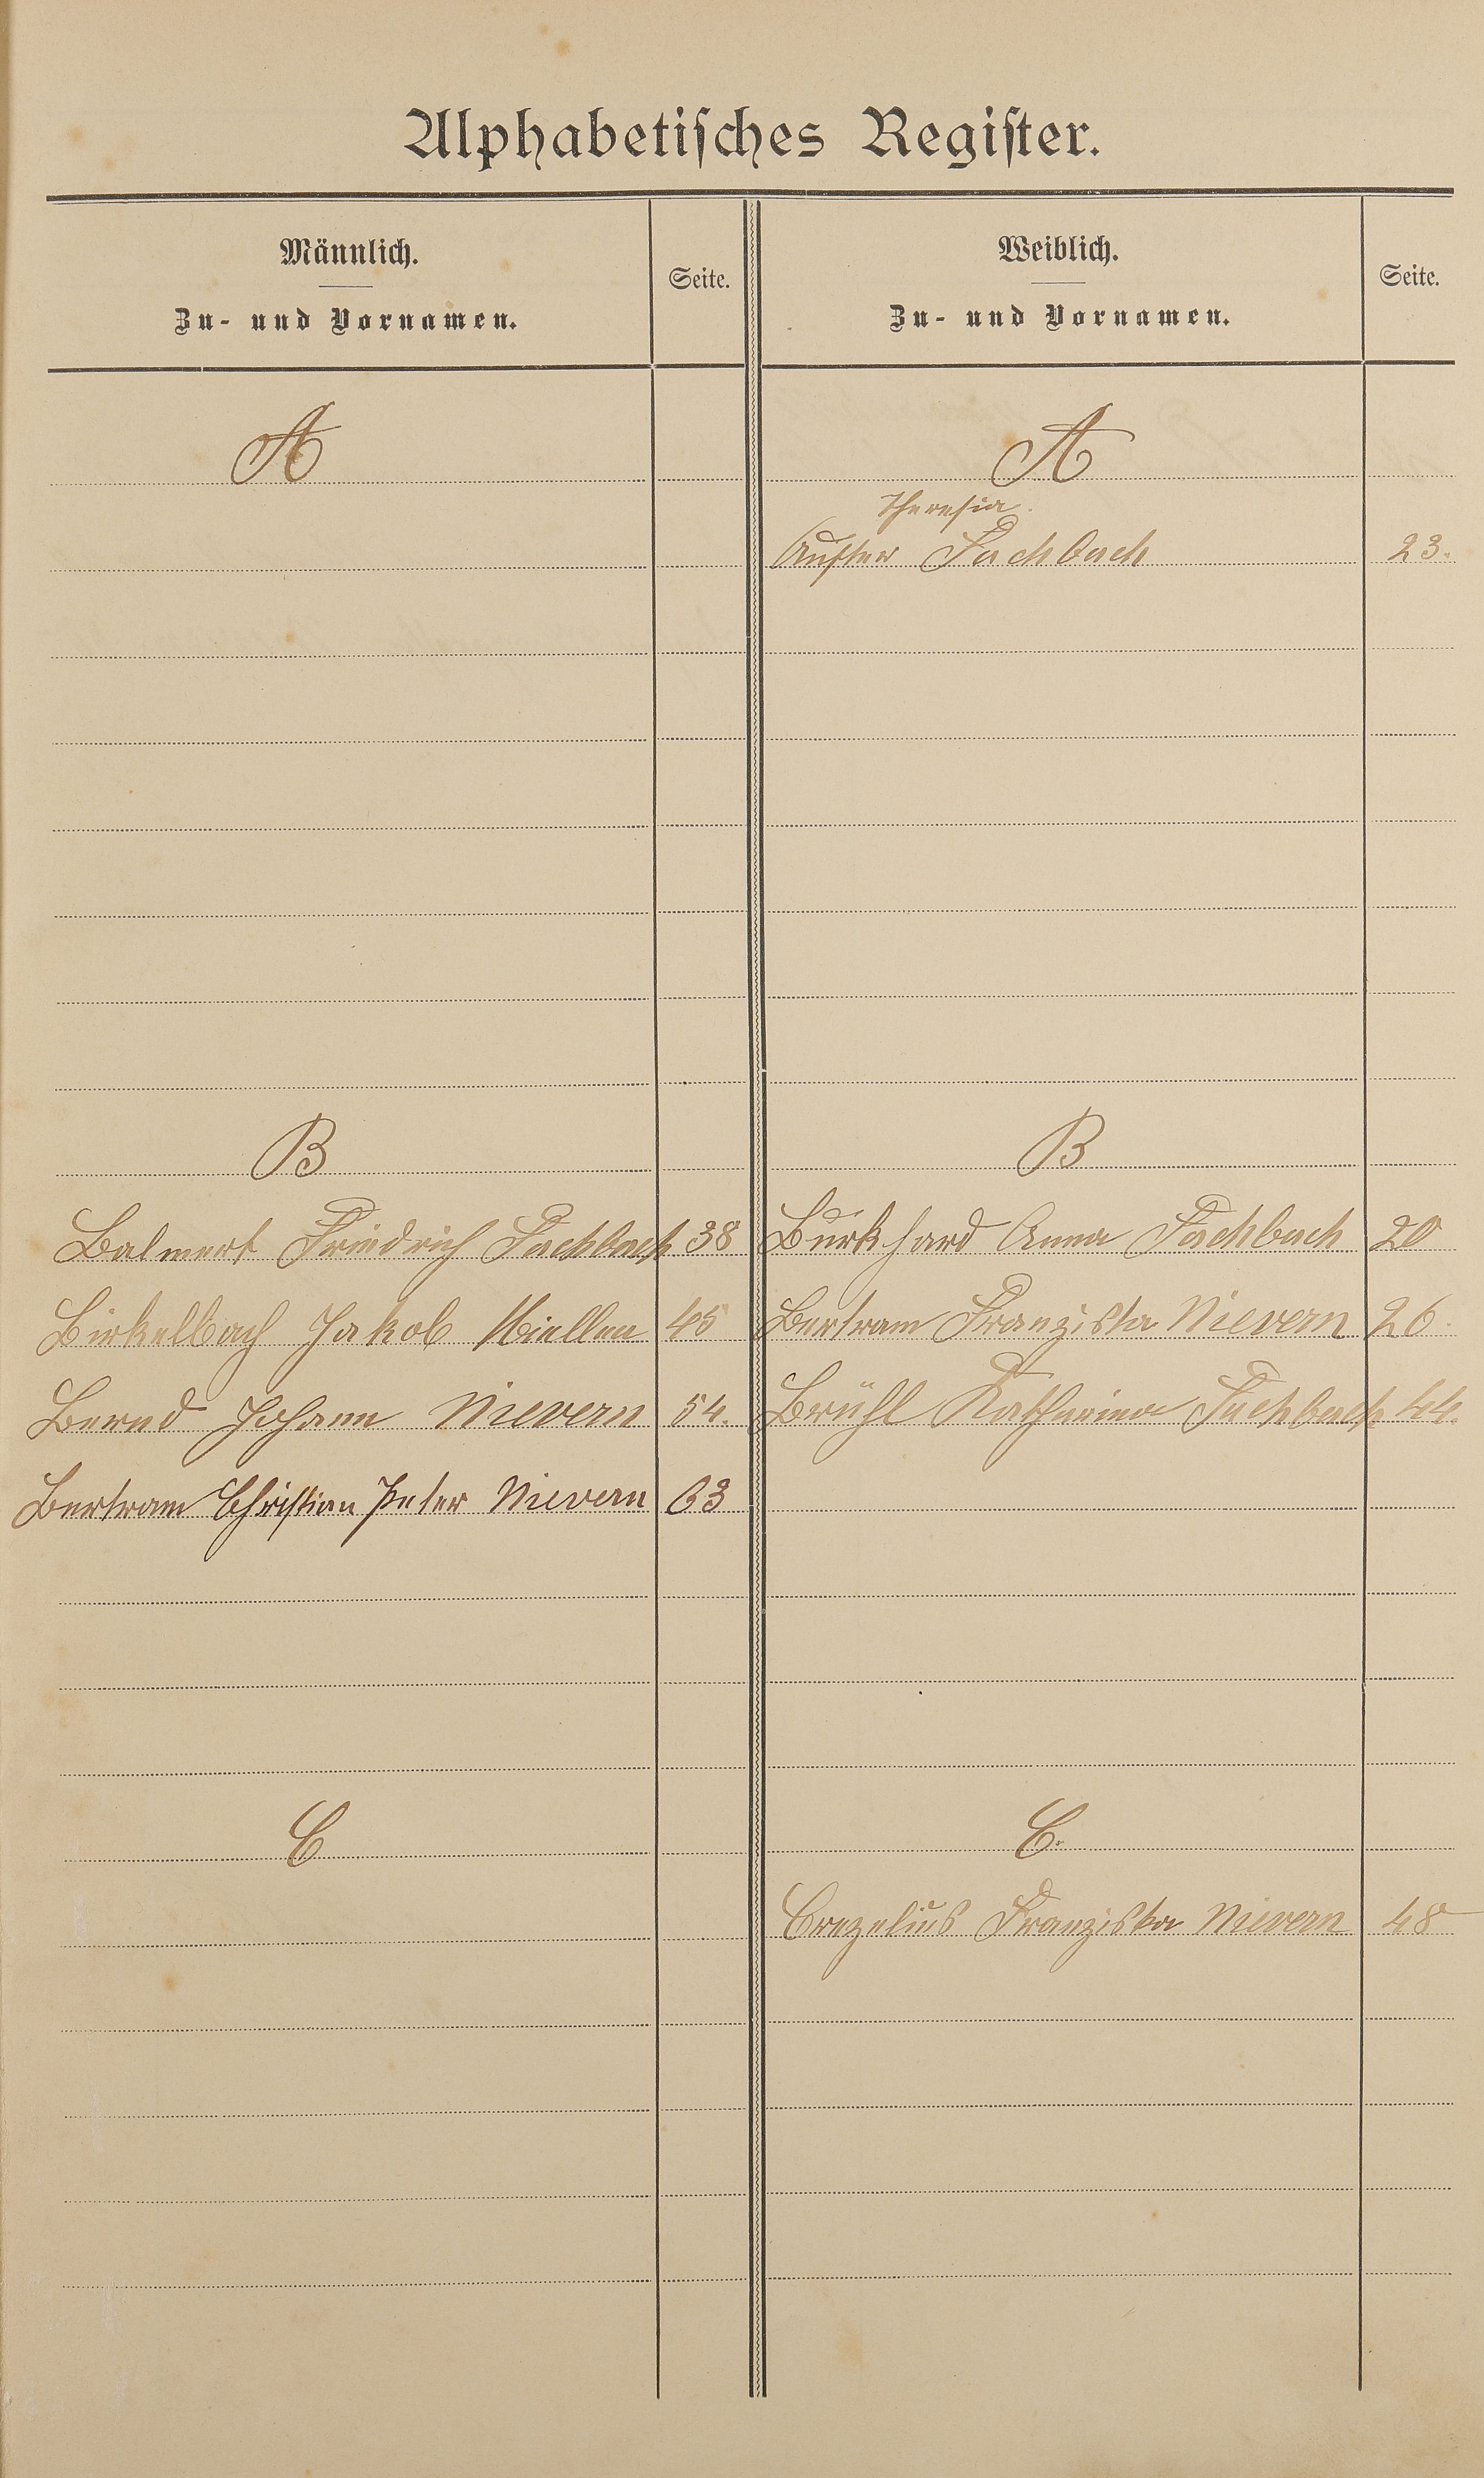 Alphabetisches Register.
Männlich.
Zu- und Vornamen.
Seite.
Weiblich.
Zu- und Vornamen.
Seite.
A
A
Theresia
Auster Fachbach 23.
B
B
Balmert Friedrich Fachbach 38
Burkhard Anna Fachbach 20
Birkelbach Jakob Miellen 45
Bertram Franziska Nievern 26.
Bernd Johann Nievern 54.
Brühl Katharina Fachbach 44.
Bertram Christian Peter Nievern 63
C
C.
Crezelius Franziska Nievern 48